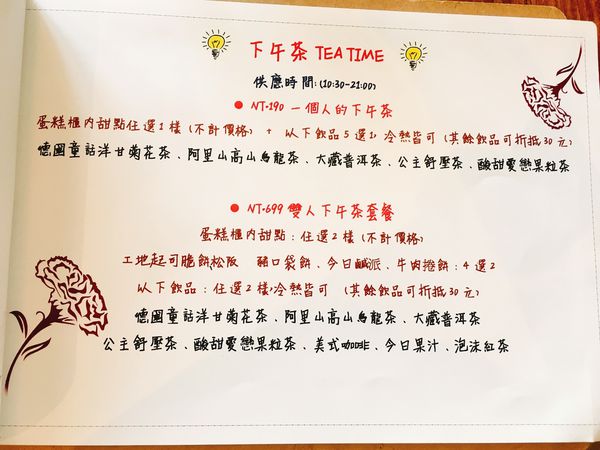 下午茶 TEA TIME
供應時間:(10:30-21:00)
● NT.190 一個人的下午茶
蛋糕櫃內甜點任選1樣(不計價格) + 以下飲品5選1,冷熱皆可(其餘飲品可折抵30元)
德國童話洋甘菊花茶、阿里山高山烏龍茶、大藏普洱茶、公主舒壓茶、酸甜愛戀果粒茶
● NT.699 雙人下午茶套餐
蛋糕櫃內甜點:任選2樣(不計價格)
工地起司脆餅松阪 豬口袋餅、今日鹹派、牛肉捲餅:4選2
以下飲品:任選2樣,冷熱皆可 (其餘飲品可折抵30元)
德國童話洋甘菊花茶、阿里山高山烏龍茶、大藏普洱茶
公主舒壓茶、酸甜愛戀果粒茶、美式咖啡、今日果汁、泡沫紅茶